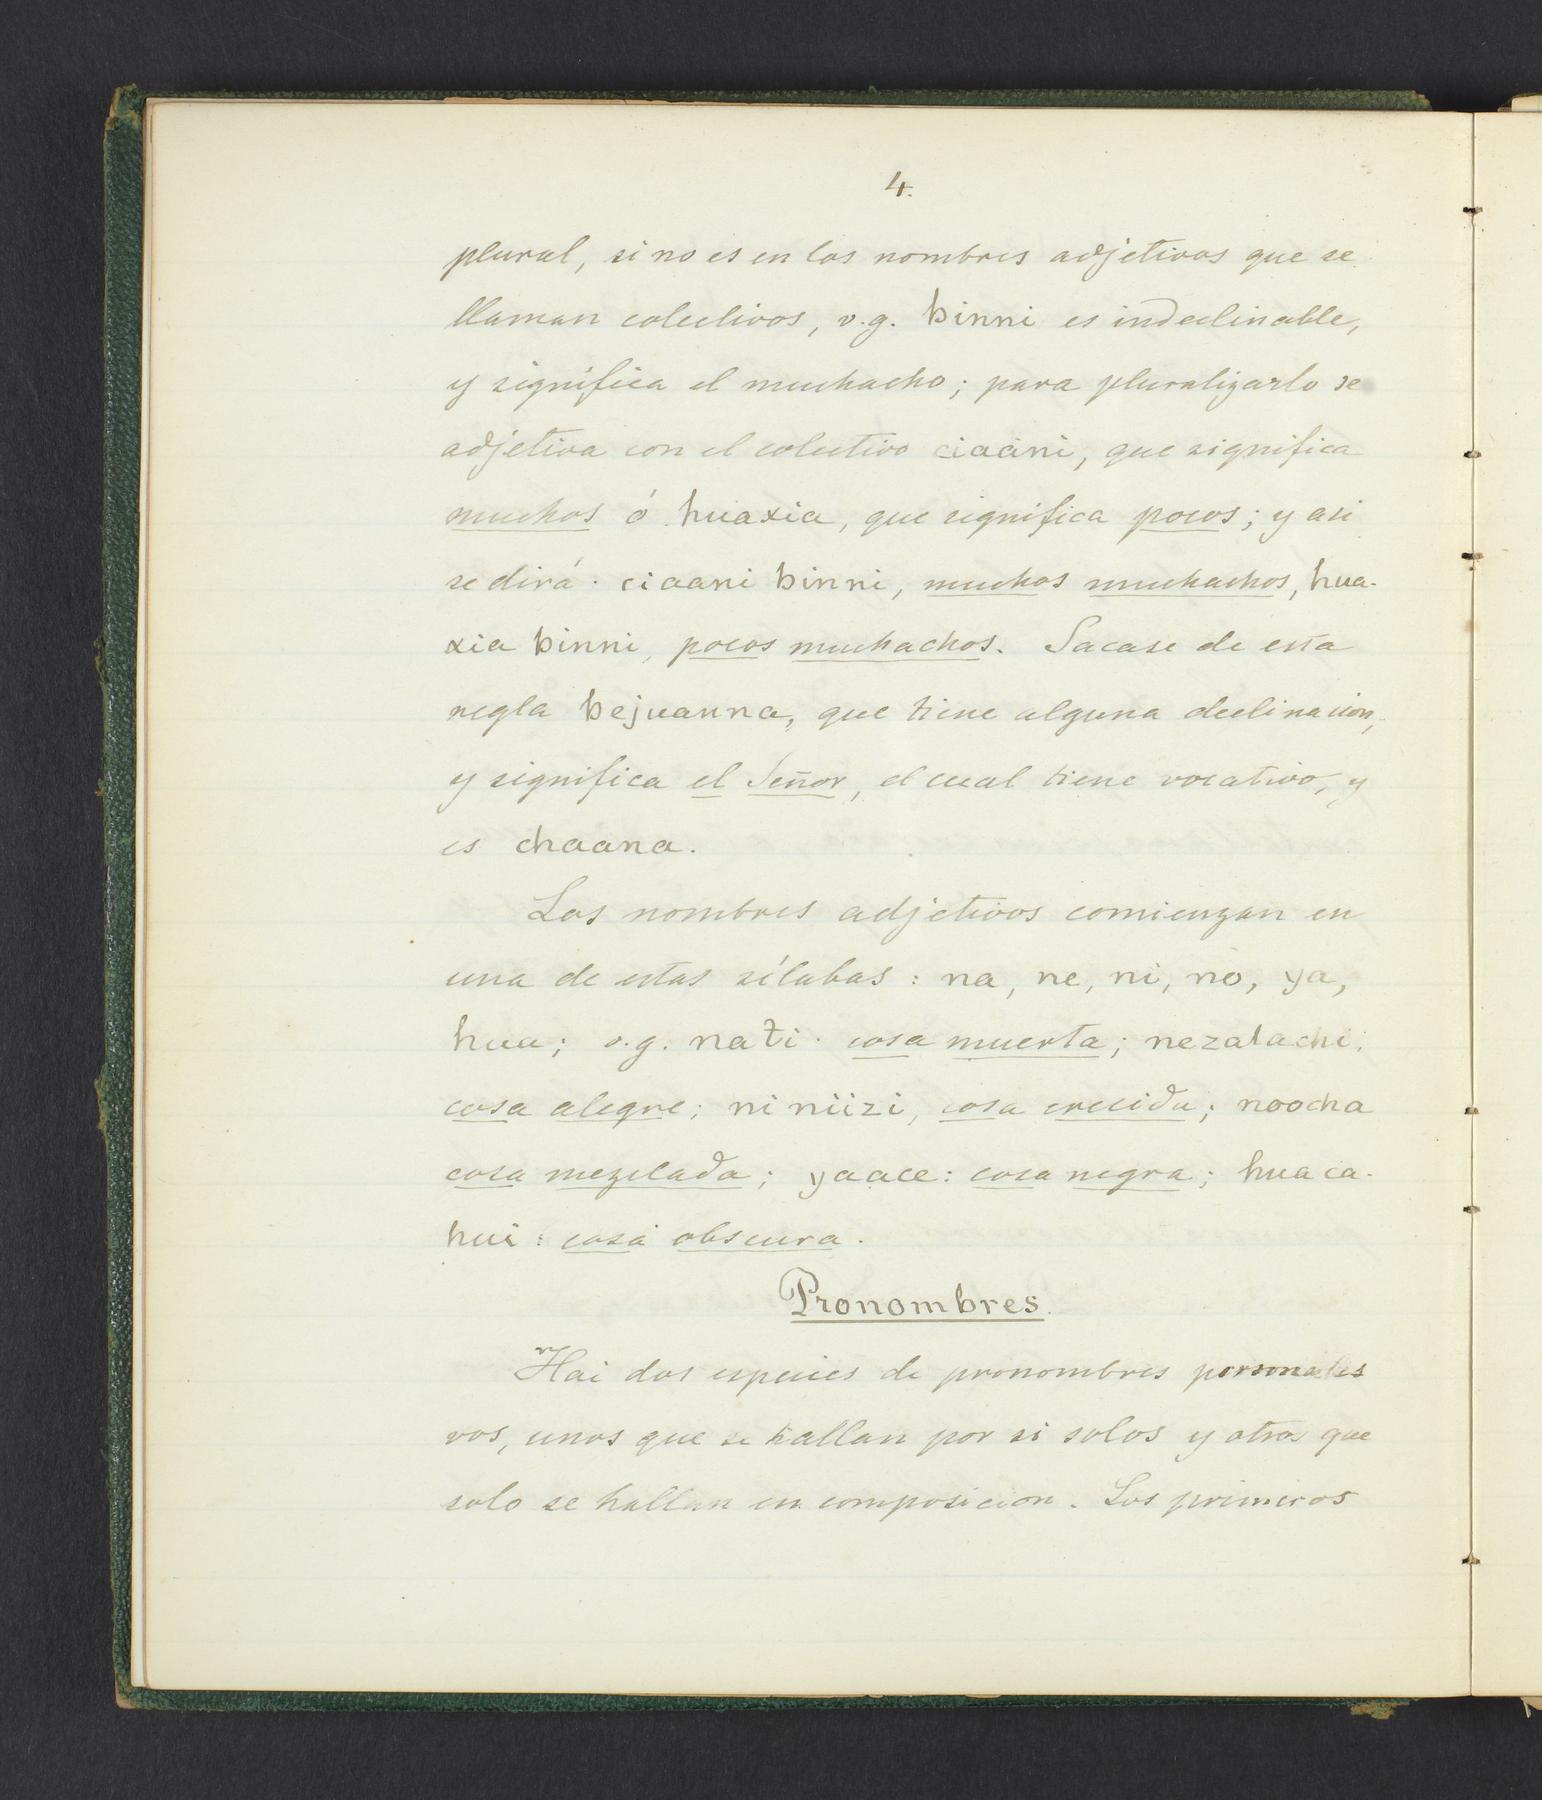 4.
plural, si no es en los nombres adjetivos que se
llaman colectivos, v.g. binni es indeclinable,
y significa el muchacho; para pluralizarlo se
adjetiva con el colectivo ciaani, que significa
muchos ó huaxia, que significa pocos; y asi
se dirá. ciaani binni, muchos muchachos, hua-
xia binni, pocos muchachos. Sacase de esta
regla bejuanna, que tiene alguna declinacion,
y significa el Señor, el cual tiene vocativo, y
es chaana.
Los nombres adjetivos comienzan en
una de estas sílabas: na, ne, ni, no, ya,
hua; v.g. nati. cosa muerta; nezalachi.
cosa alegre; niniizi, cosa crecida; noocha
cosa mezclada; yaace: cosa negra; huaca-
hui: cosa obscura.
Pronombres.
Hai dos especies de pronombres personales
vos, unos que se hallan por si solos y otros que
solo se hallan en composicion. Los primeros